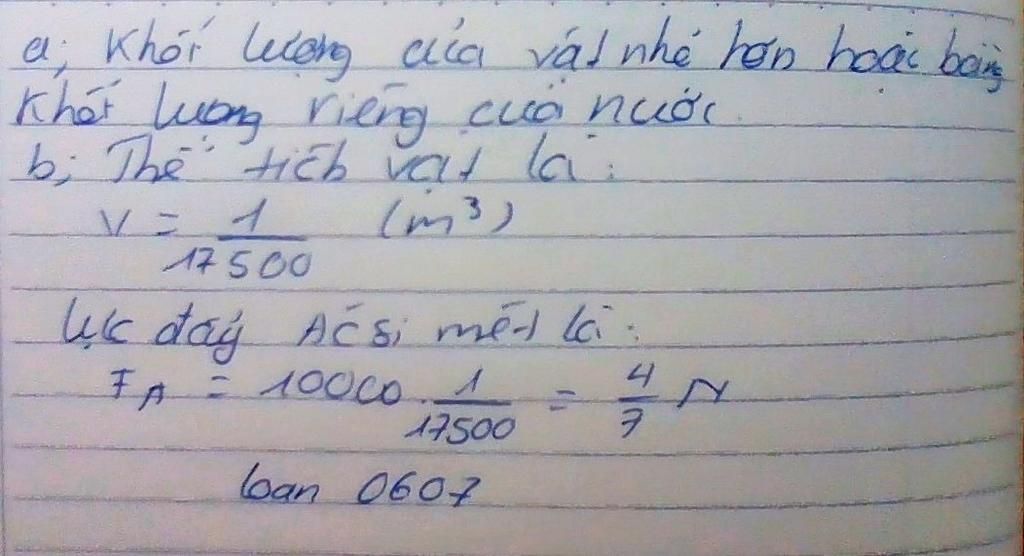 a; Khối lượng của vật nhỏ hơn hoặc bằng
Khối lượng riêng của nước.
b; Thể tích vật là:
V = 1/17500 (m³)
Lực đẩy Ácsimét là:
FA = 10000 . 1/17500 = 4/7 N
loan 0607